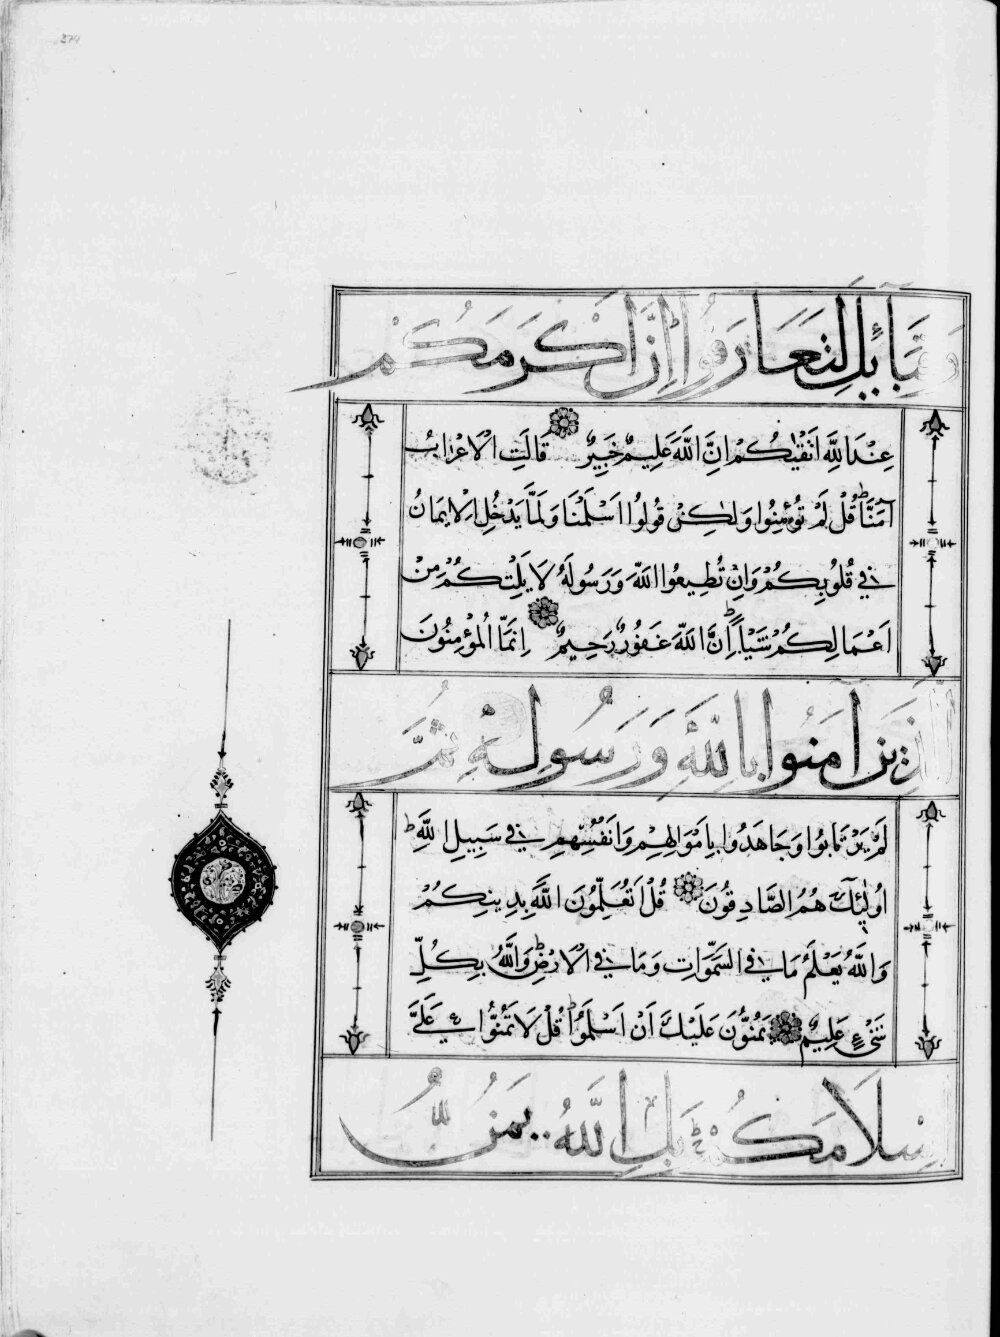 274
وقبآئل لتعارفوا ان اكرمكم
عند الله اتقيكم ان الله عليم خبير قالت الاعراب
آمنا قل لم تؤمنوا ولكن قولوا اسلمنا ولما يدخل الايمان
في قلوبكم وان تطيعوا الله ورسوله لا يلتكم من
اعمالكم شيأ ان الله غفور رحيم انما المؤمنون
الذين امنوا بالله ورسوله ثم
لم يرتابوا وجاهدوا باموالهم وانفسهم في سبيل الله
اولئك هم الصادقون قل اتعلمون الله بدينكم
والله يعلم ما في السموات وما في الارض والله بكل
شيء عليم يمنون عليك ان اسلموا قل لا تمنوا علي
اسلامكم بل الله يمن